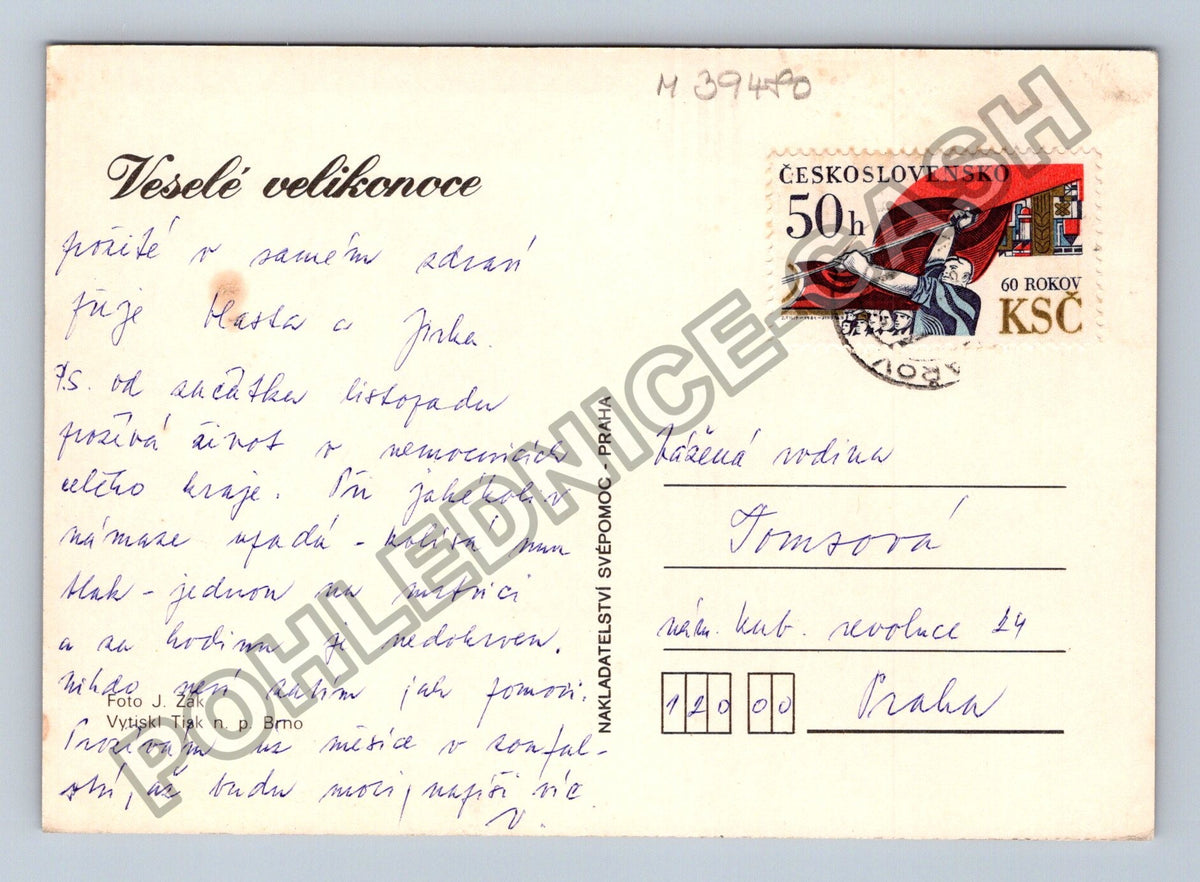 M 39480
Veselé velikonoce
prožité v samém zdraví
přeje Vlasta a Jirka.
P.S. od začátku listopadu
požívá život v nemocnicích
celého kraje. Při jakékoliv
námaze upadá - kolísá mu
tlak - jednou na mrtvici
a za hodinu je nedokrven.
Nikdo neví zatím jak pomoci.
Foto J. Žák
Vytiskl Tisk n. p. Brno
Prožívám už měsíce v zoufal-
ství, až budu moci, napíši víc
V.
NAKLADATELSTVÍ SVÉPOMOC - PRAHA
ČESKOSLOVENSKO
50h
60 ROKOV
KSČ
AROV
Vážená rodina
Tomsová
nám. kub. revoluce 24
120 00 Praha
POHLEDNICE-CASH